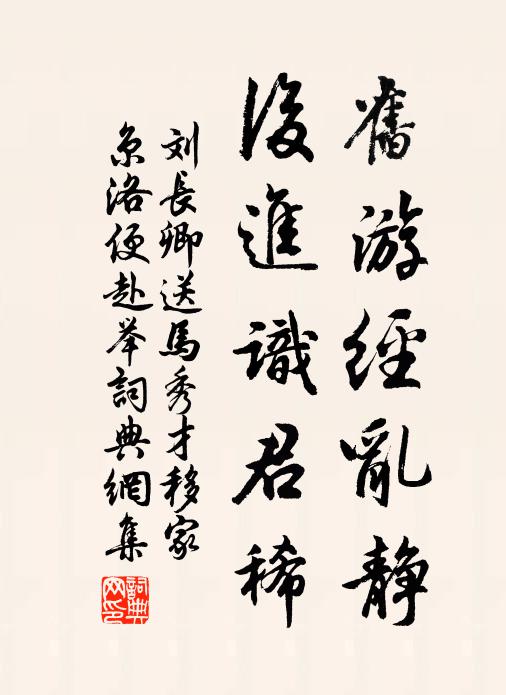 舊游經亂静
後進識君稀
刘長卿送馬秀才移家
京洛便赴举詞典網集
詞典网印